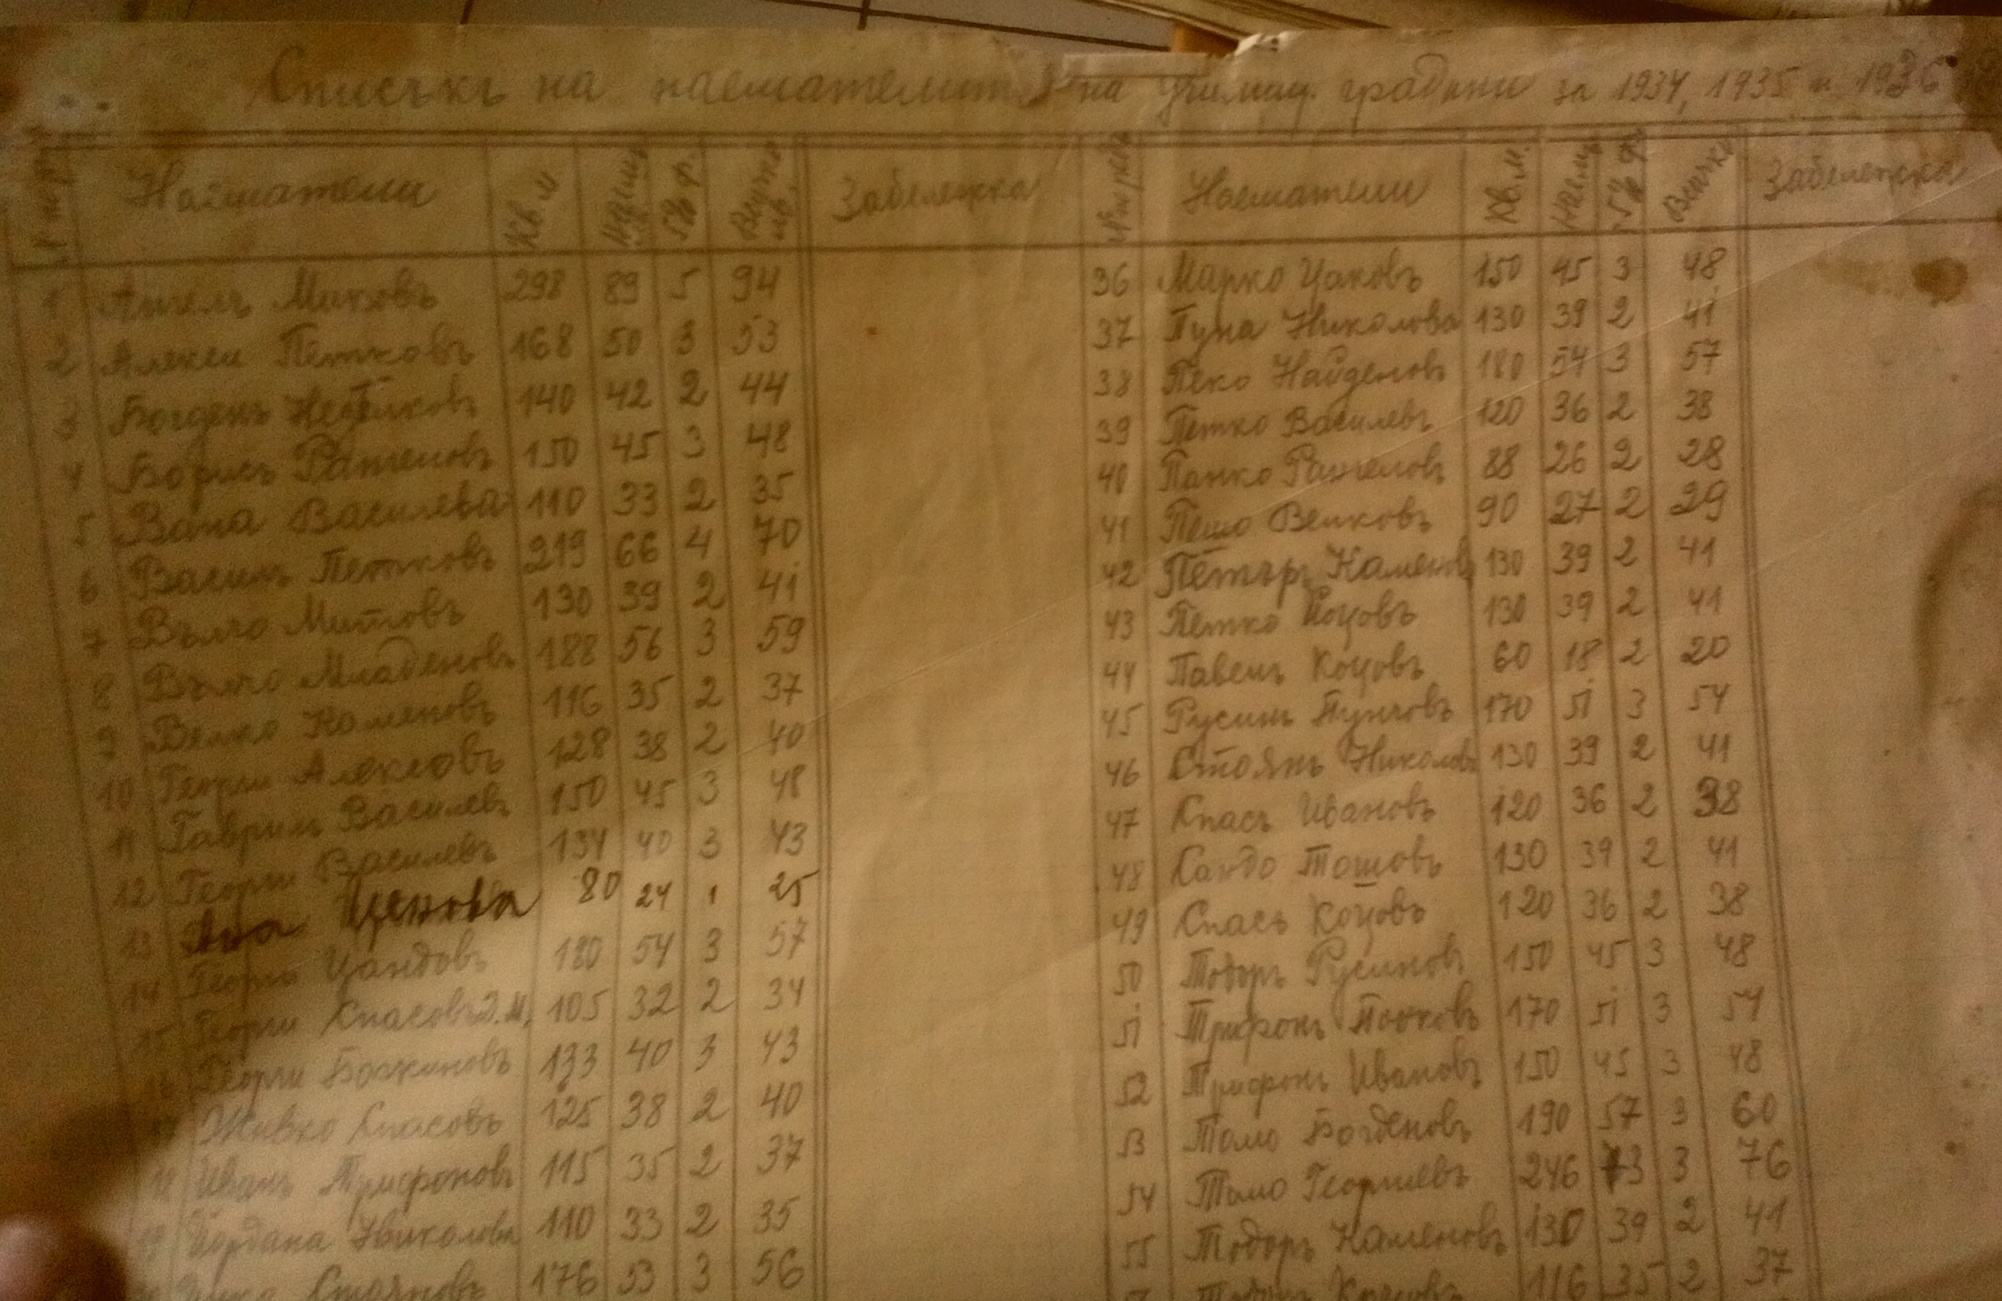 Списъкъ на наемателитѣ на училищ. градини за 1934, 1935 и 1936
Наематели Кв. м. Наемъ 5% ф. Всичко лв. Забележка
1 Ангелъ Миковъ 298 89 5 94
2 Алекси Петковъ 168 50 3 53
3 Богденъ Неделковъ 140 42 2 44
4 Борисъ Рангеловъ 150 45 3 48
5 Вана Василева 110 33 2 35
6 Василъ Петковъ 219 66 4 70
7 Вълчо Митовъ 130 39 2 41
8 Вълчо Младеновъ 188 56 3 59
9 Велко Каменовъ 116 35 2 37
10 Георги Алексовъ 128 38 2 40
11 Гаврилъ Василевъ 150 45 3 48
12 Георги Василевъ 134 40 3 43
13 Ана Ценова 80 24 1 25
14 Георги Цандовъ 180 54 3 57
15 Георги Спасовъ Д.М. 105 32 2 34
16 Георги Божиновъ 133 40 3 43
Живко Спасовъ 125 38 2 40
18 Иванъ Трифоновъ 115 35 2 37
19 Йордана Николова 110 33 2 35
Стояновъ 176 53 3 56
№ по редъ Наематели Кв. м. Наемъ 5% ф. Всичко Забележка
36 Марко Цаковъ 150 45 3 48
37 Пуна Николова 130 39 2 41
38 Пеко Найденовъ 180 54 3 57
39 Петко Василевъ 120 36 2 38
40 Панко Рангеловъ 88 26 2 28
41 Пешо Велковъ 90 27 2 29
42 Петъръ Каменовъ 130 39 2 41
43 Петко Коцовъ 130 39 2 41
44 Павелъ Коцовъ 60 18 2 20
45 Русинъ Пунчовъ 170 51 3 54
46 Стоянъ Николовъ 130 39 2 41
47 Спасъ Ивановъ 120 36 2 38
48 Сандо Тошовъ 130 39 2 41
49 Спасъ Коцовъ 120 36 2 38
50 Тодоръ Русиновъ 150 45 3 48
51 Трифонъ 170 51 3 54
52 Трифонъ Ивановъ 150 45 3 48
53 Томо Богденовъ 190 57 3 60
54 Томо Георгиевъ 246 73 3 76
55 Тодоръ Каменовъ 130 39 2 41
Тодоръ 116 35 2 37